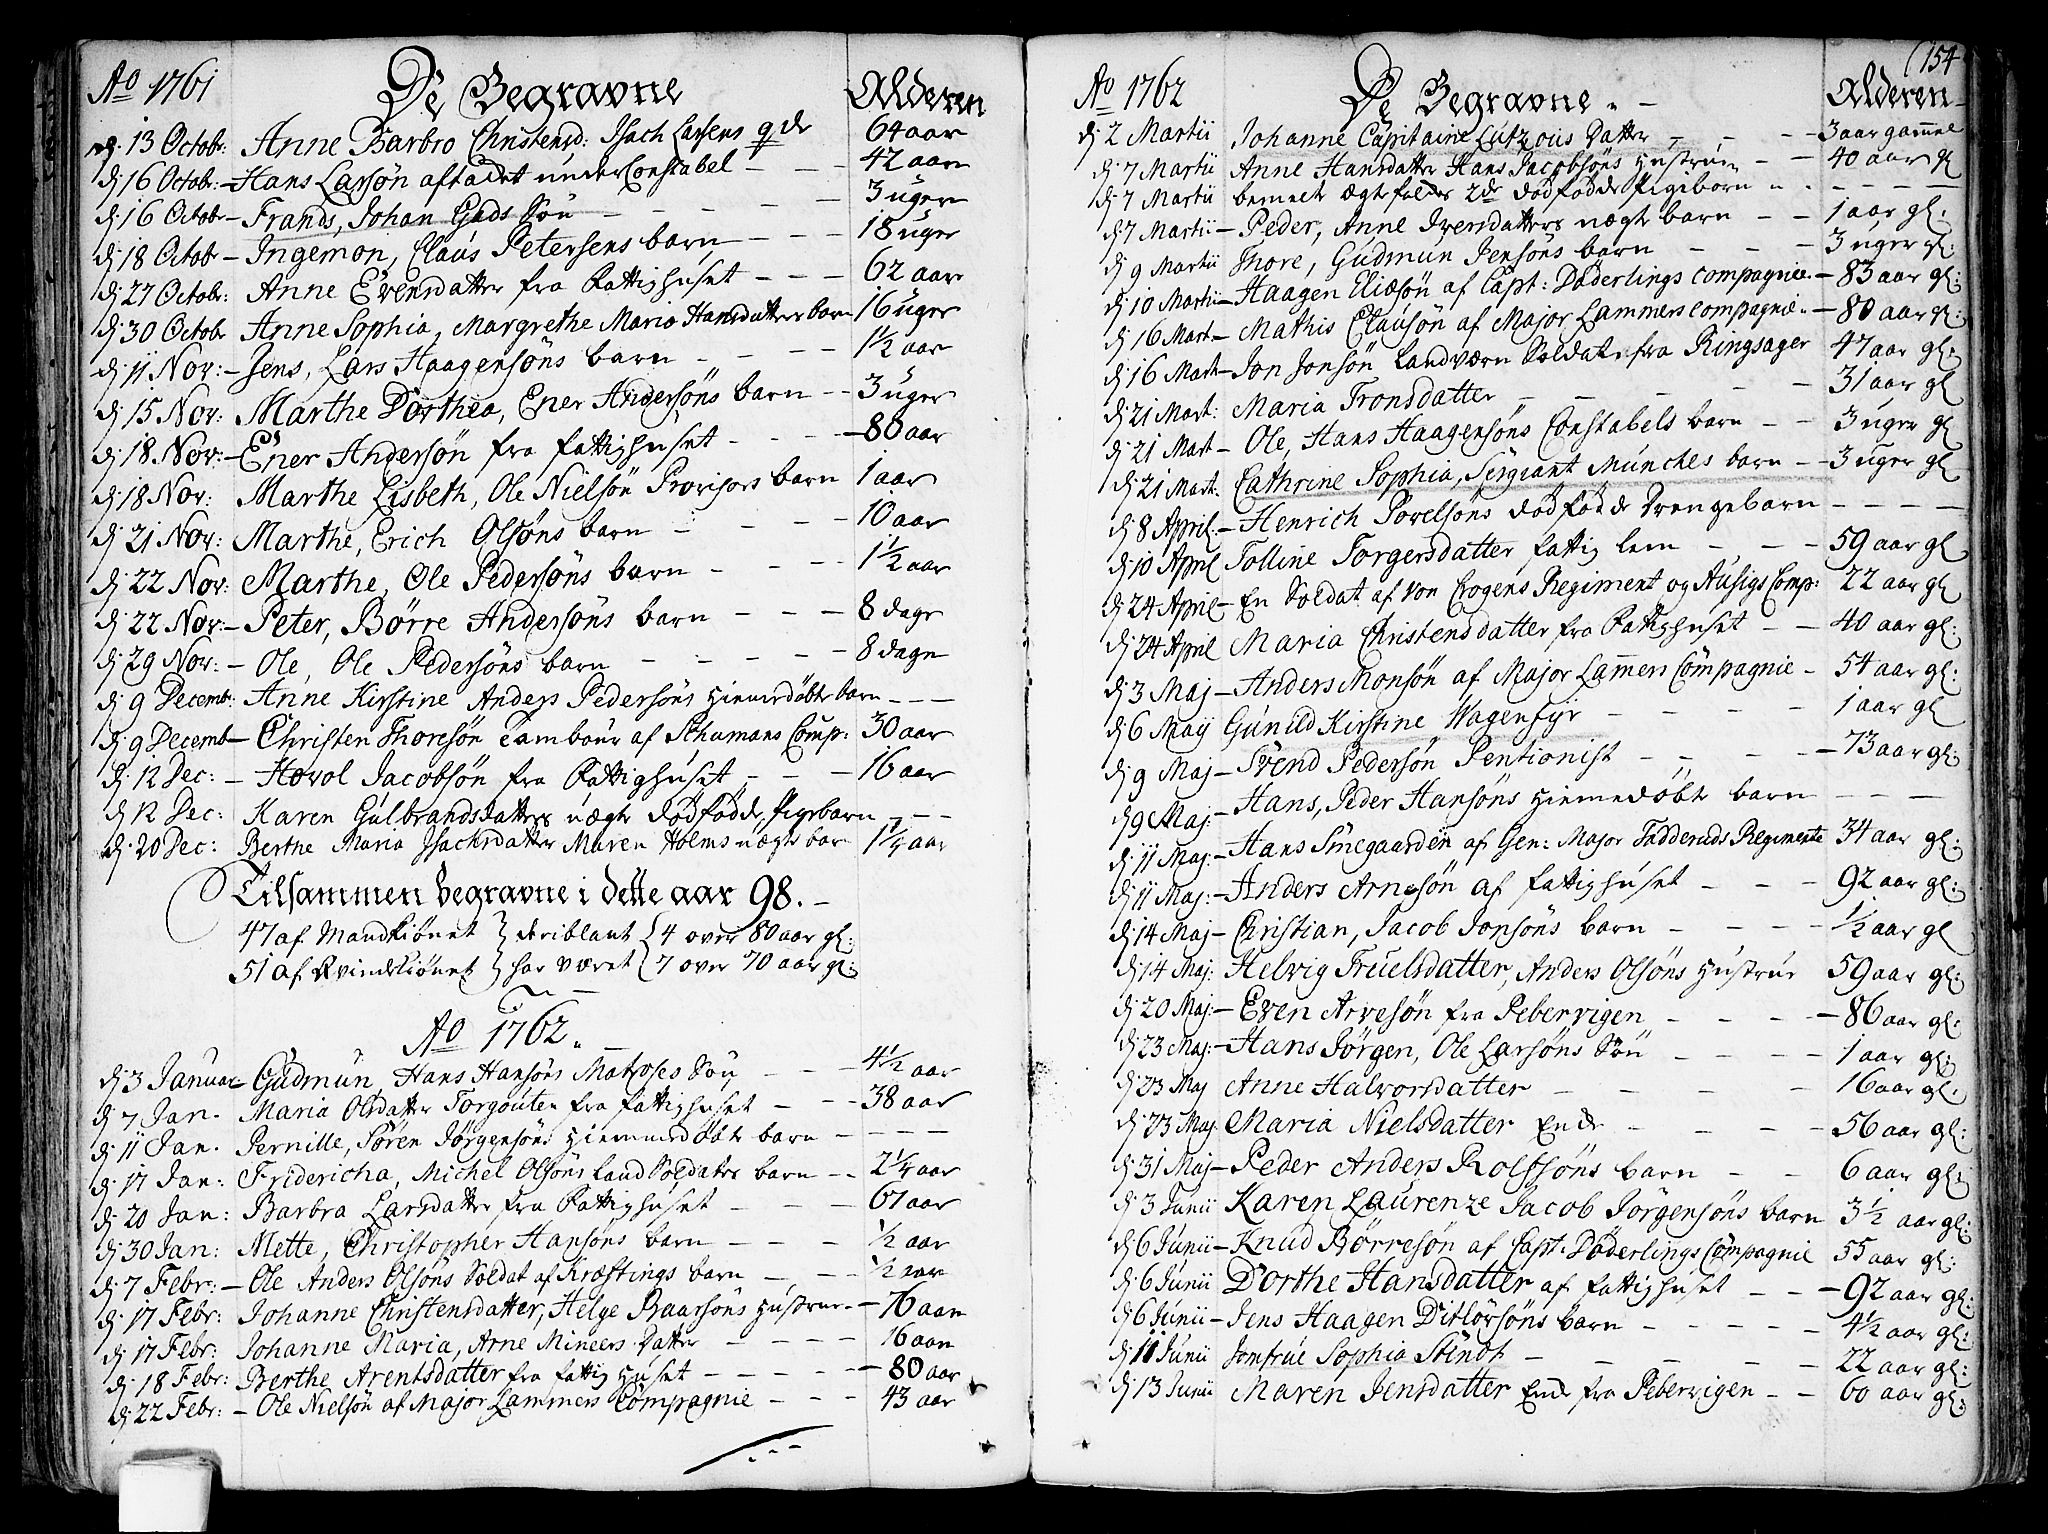 Ao 1761 De Begravne Alderen
d. 13 Octobr: Anne Barbro Christensd: Isach Larsens qde 64 aar
d. 16 Octobr:- Hans Larsön aftadet under Constabel - - 42 aar
d. 16 Octobr- Frands, Johan Gads Sön - - - - - 3 uger
d. 18 Octobr- Ingemon, Claus Petersens barn - - - 18 uger
d. 27 Octobr: Anne Evensdatter fra Fattighuset - - - 62 aar
d. 30 Octobr Anne Sophia, Margrethe Maria Hansdatters barn 16 uger
d. 11 Nov:- Jens, Lars Haagensöns barn - - - - 1½ aar
d. 15 Nov: Marthe Dorthea, Ener Andersöns barn - - 3 uger
d. 18 Nov:- Ener Andersön fra fattighuset - - - - 80 aar
d. 18 Nov: Marthe Lisbeth, Ole Nielsön Provisors barn 1 aar
d. 21 Nov: Marthe, Erich Olsöns barn - - - - 10 aar
d. 22 Nov: Marthe, Ole Pedersöns barn - - - - 1½ aar
d. 22 Nov:- Peter, Börre Andersöns barn - - - 8 dage
d. 29 Nov:- Ole, Ole Pedersöns barn - - - - - 8 dage
d. 9 Decemb: Anne Kirstine Anders Pedersöns hiemedöbte barn - - -
d. 9 Decemb- Christen Thoresön Tambour af Schumans Comp: 30 aar
d. 12 Dec:- Hovol Jacobsön fra Fattighuset - - - 16 aar
d. 12 Dec: Karen Gulbrandsdatters uægte dödfödde Pigebarn - - -
d. 20 Dec: Berthe Maria Isachsdatter Maren Holms uægte barn 1¼ aar
Tilsammen begravne i dette aar 98. -
47 af Mandkiönet } deriblant { 4 over 80 aar gl:
51 af Qvindekiönet } har været { 7 over 70 aar gl:
Ao 1762
d. 3 Januar- Gudmun, Hans Hansöns Matroses Sön - - - 4½ aar
d. 7 Jan. Maria Olsdatter Torgouten fra fattighuset - - - 38 aar
d. 11 Jan. Pernille, Sören Jörgensöns hiemmedöbte barn - - - -
d. 17 Jan: Fridericha, Michel Olsöns Land Soldats barn - - 2¼ aar
d. 20 Jan: Barbra Larsdatter fra Fattighuset - - - 67 aar
d. 30 Jan: Mette, Christopher Hansöns barn - - - - ½ aar
d. 7 Febr:- Ole Anders Olsöns Soldat af Kræftings barn - - - ½ aar
d. 17 Febr: Johanne Christensdatter, Helge Baarsöns hustrue - 76 aar
d. 17 Febr: Johanne Maria, Arne Mineers Datter - - - - 16 aar
d. 18 Febr: Berthe Arentsdatter fra fattig huset - - - - - 80 aar
d. 22 Febr:- Ole Nielsön af Major Lammers Compagnie - - - 43 aar
(154
Ao 1762 De Begravne - Alderen
d. 2 Martii Johanne Capitaine Lutzous Datter - - - - 3 aar gammel
d. 7 Martii Anne Hansdatter Hans Jacobsöns hustrue - - 40 aar gl
d. 7 Martii bemelte ægtefolks 2de dödfödde Pigebörn - - - - -
d. 7 Martii- Peder, Anne Iversdatters uægte barn - - 1 aar gl.
d. 9 Martii Thore, Gudmun Jensöns barn - - - - 3 uger gl:
d. 10 Martii- Haagen Eliæsön af Capt: Döderlings Compagnie - 83 aar gl:
d. 16 Mart- Mathis Clausön af Major Lammers Compagnie - 80 aar gl:
d. 16 Mart- Jon Jonsön Landværn Soldat fra Ringsager 47 aar gl:
d. 21 Mart: Maria Tronsdatter - - - - - 31 aar gl
d. 21 Mart- Ole, Hans Haagensöns Constabels barn - - 3 uger gl
d. 21 Mart. Cathrine Sophia, Sergiant Munches barn - - 3 uger gl
d. 8 April- Henrich Povelsöns dödfödde Drengebarn - - - -
d. 10 April Tolline Torgersdatter fattig lem - - - 59 aar gl
d. 24 April- En Soldat af von Crogens Regiment og Ausigs Comp: 22 aar gl
d. 24 April Maria Christensdatter fra Fattighuset - - 40 aar gl:
d. 3 Maj- Anders Monsön af Major Lammers Compagnie - 54 aar gl:
d. 6 Maij Gunild Kirstine Wagenfyr - - - - 1 aar gl
d. 9 Maj- Svend Pedersön Pentionist - - - - 73 aar gl:
d. 9 Maj: Hans, Peder Hansöns hiemedöbte barn - - -
d. 11 Maj:- Hans Smegaarden af Gen: Major Fadderuds Regimente 34 aar gl:
d. 11 Maj:- Anders Arnesön af fattighuset - - - 92 aar gl:
d. 14 Maj- Christian, Jacob Jonsöns barn - - - - ½ aar gl
d. 14 Maj: Helvig Truelsdatter, Anders Olsöns hustrue 59 aar gl:
d. 20 Maj:- Even Arvesön fra Pebervigen - - - - 86 aar gl:
d. 23 Maj:- Hans Jörgen, Ole Larsöns Sön - - - - 1 aar gl:
d. 23 Maj Anne Halvorsdatter - - - - - 16 aar gl.
d. 23 Maj: Maria Nielsdatter Enke - - - - 56 aar gl:
d. 31 Maj- Peder Anders Rolfsöns barn - - 6 aar gl:
d. 3 Junii Karen Laurenze Jacob Jörgensöns barn 3½ aar gl:
d. 6 Junii- Knud Börresön af Capt: Döderlings Compagnie 55 aar gl:
d. 6 Junii Dorthe Hansdatter af fattighuset - - - 92 aar gl:
d. 6 Junii- Jens Haagen Ditlövsöns barn - - - - - 4½ aar gl:
d. 11 Junii Jomfrue Sophia Stindt - - - - - 22 aar gl:
d. 13 Junii Maren Jensdatter Enke fra Pebervigen - - 60 aar gl: